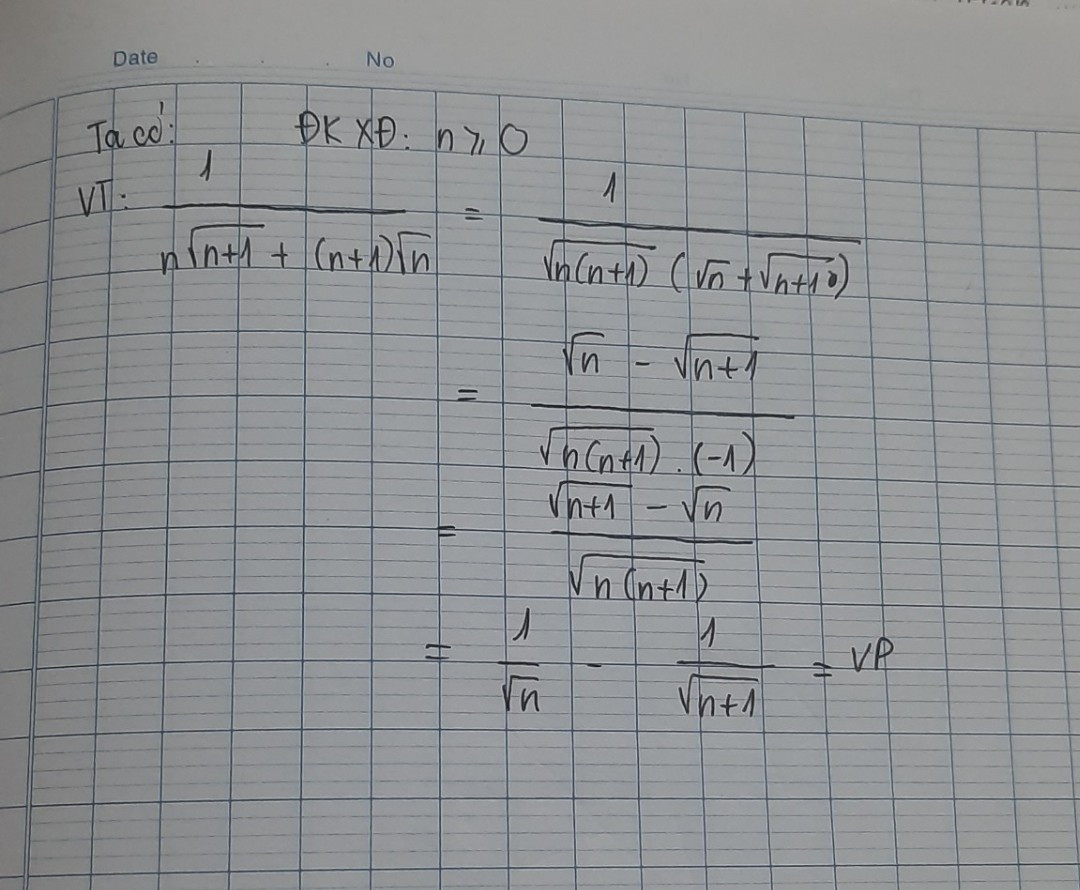 Date . . . No
Ta có: ĐKXĐ: n ⩾ 0
VT: 1/(n√(n+1) + (n+1)√n) = 1/(√(n(n+1)) (√n + √(n+1)))
= (√n - √(n+1))/(√(n(n+1)) . (-1))
= (√(n+1) - √n)/√(n(n+1))
= 1/√n - 1/√(n+1) = VP